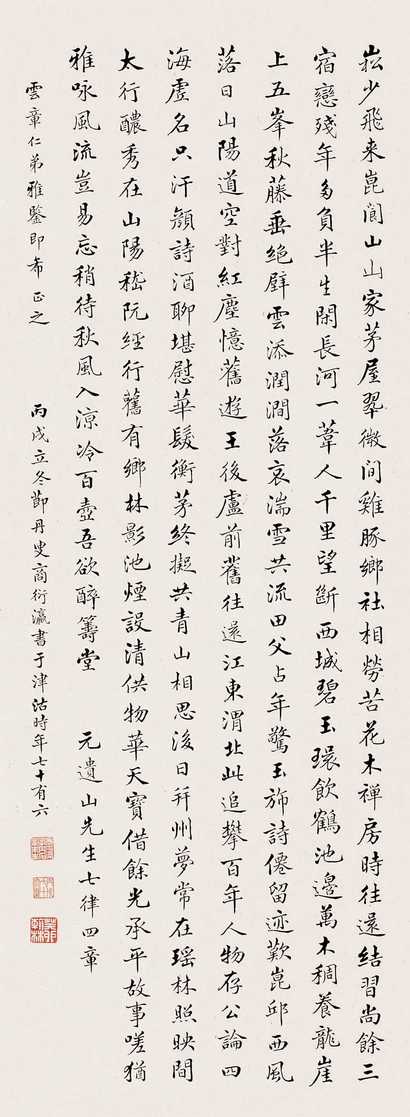 崧少飛来崑閬山山家茅屋翠微间雞豚鄉社相勞苦花木禅房時往還結習尚餘三
宿戀殘年多負半生閑長河一葦人千里望斷西城碧玉環飲鶴池邊萬木稠養龍崖
上五峯秋藤垂绝壁雲添潤澗落哀湍雪共流田父占年驚玉旆詩僊留迹歎崑邱西風
落日山陽道空對紅塵憶舊遊王後盧前舊往還江東渭北此追攀百年人物存公論四
海虛名只汗顔詩酒聊堪慰華髮衡茅終擬共青山相思後日并州夢常在瑶林照映間
太行醲秀在山陽嵇阮經行舊有鄉林影池煙設清供物華天寶借餘光承平故事嗟猶
雅咏風流豈易忘稍待秋風入涼冷百壺吾欲醉籌堂 元遺山先生七律四章
雲章仁弟雅鑒即希正之
丙戌立冬節丹叟商衍瀛書于津沽時年七十有六